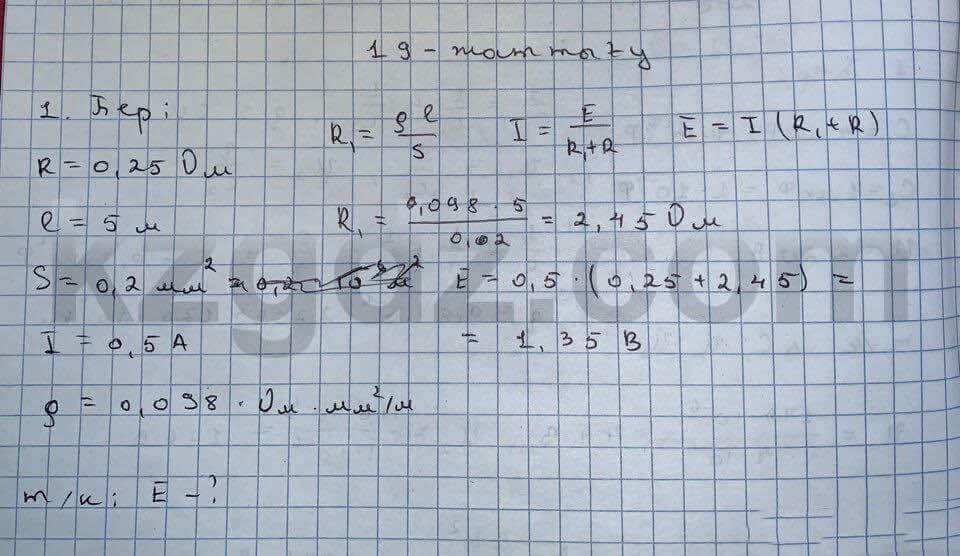 19 - жаттығу
1. Бер:
R = 0,25 Ом
l = 5 м
S = 0,2 мм²
I = 0,5 А
ρ = 0,098 · Ом · мм²/м
т/к: E - ?
R₁ = ρ l / S   I = E / R₁+R   E = I (R₁ + R)
R₁ = 0,098 · 5 / 0,02 = 2,45 Ом
E = 0,5 · (0,25 + 2,45) =
= 1,35 В
kzgdz.com